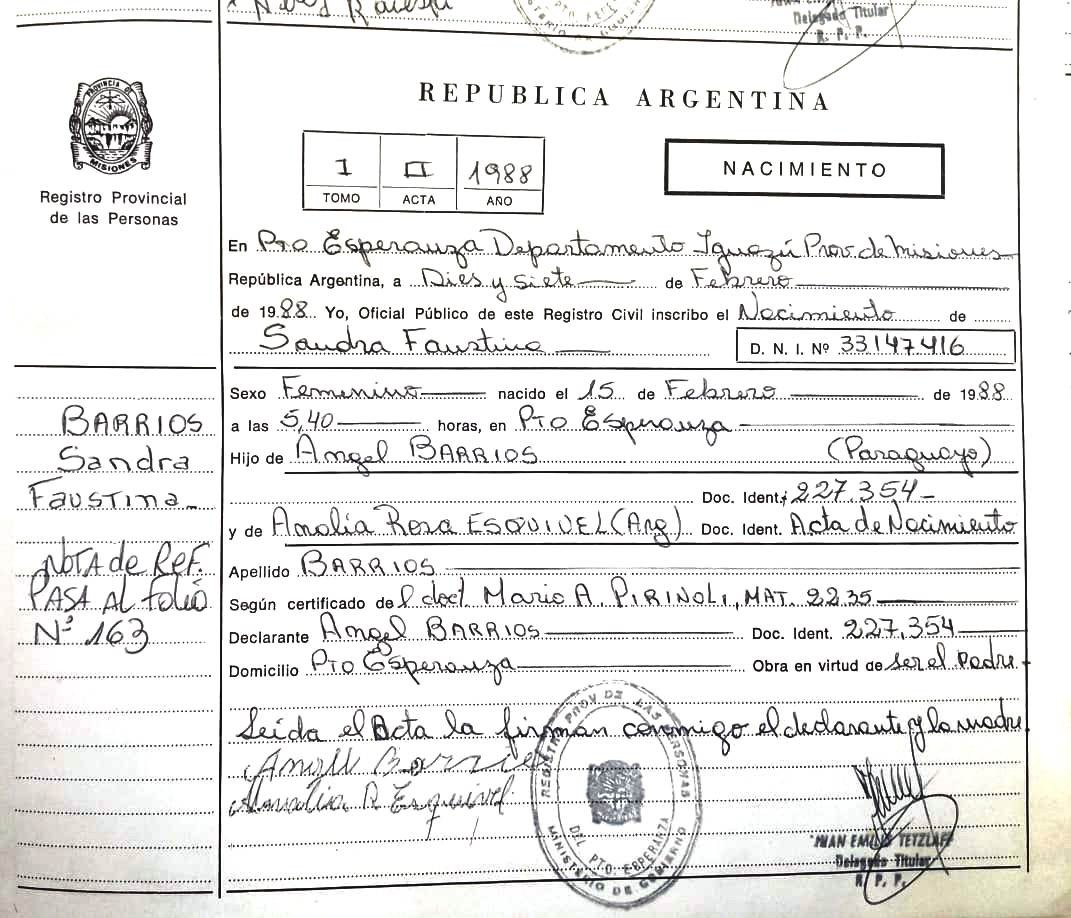 Delegado Titular
R. P. P.
PROVINCIA DE
MISIONES
Registro Provincial
de las Personas
REPUBLICA ARGENTINA
1 II 1988
TOMO ACTA AÑO
NACIMIENTO
En Pto Esperanza Departamento Iguazú Prov. de Misiones
República Argentina, a Dies y siete de Febrero
de 1988 Yo, Oficial Público de este Registro Civil inscribo el Nacimiento de
Sandra Faustina D. N. I. Nº 33147416
Sexo Femenino nacido el 15 de Febrero de 1988
a las 5,40 horas, en Pto Esperanza
Hijo de Angel BARRIOS (Paraguayo)
Doc. Ident. 227.354
y de Amalia Rosa ESQUIVEL (Arg) Doc. Ident. Acta de Nacimiento
Apellido BARRIOS
Según certificado del doct. Mario A. PIRINOLI, MAT. 2235
Declarante Angel BARRIOS Doc. Ident. 227,354
Domicilio Pto Esperanza Obra en virtud de ser el Padre
Leida el Acta la firman conmigo el declarante y la madre
Angel Barrios
Amalia R Esquivel
BARRIOS
Sandra
Faustina
NOTA de REF.
PASA AL folio
Nº 163
REGISTRO PROV DE LAS PERSONAS
DEL PTO. ESPERANZA
MINISTERIO DE GOBIERNO
JUAN EMILIO TETZLAFF
Delegado Titular
R. P. P.